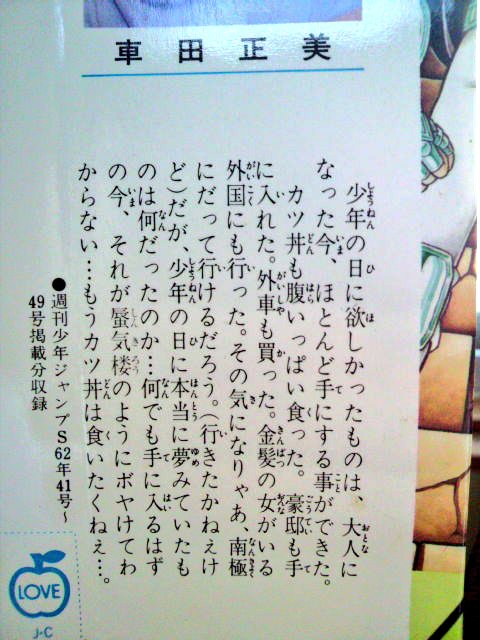 車田正美
少年の日に欲しかったものは、大人に
なった今、ほとんど手にする事ができた。
カツ丼も腹いっぱい食った。豪邸も手
に入れた。外車も買った。金髪の女がいる
外国にも行った。その気になりゃあ、南極
にだって行けるだろう。(行きたかねえけ
ど)だが、少年の日に本当に夢みていたも
のは何だったのか…何でも手に入るはず
の今、それが蜃気楼のようにボヤけてわ
からない…もうカツ丼は食いたくねぇ…。
●週刊少年ジャンプS62年41号〜
49号掲載分収録
LOVE
J・C